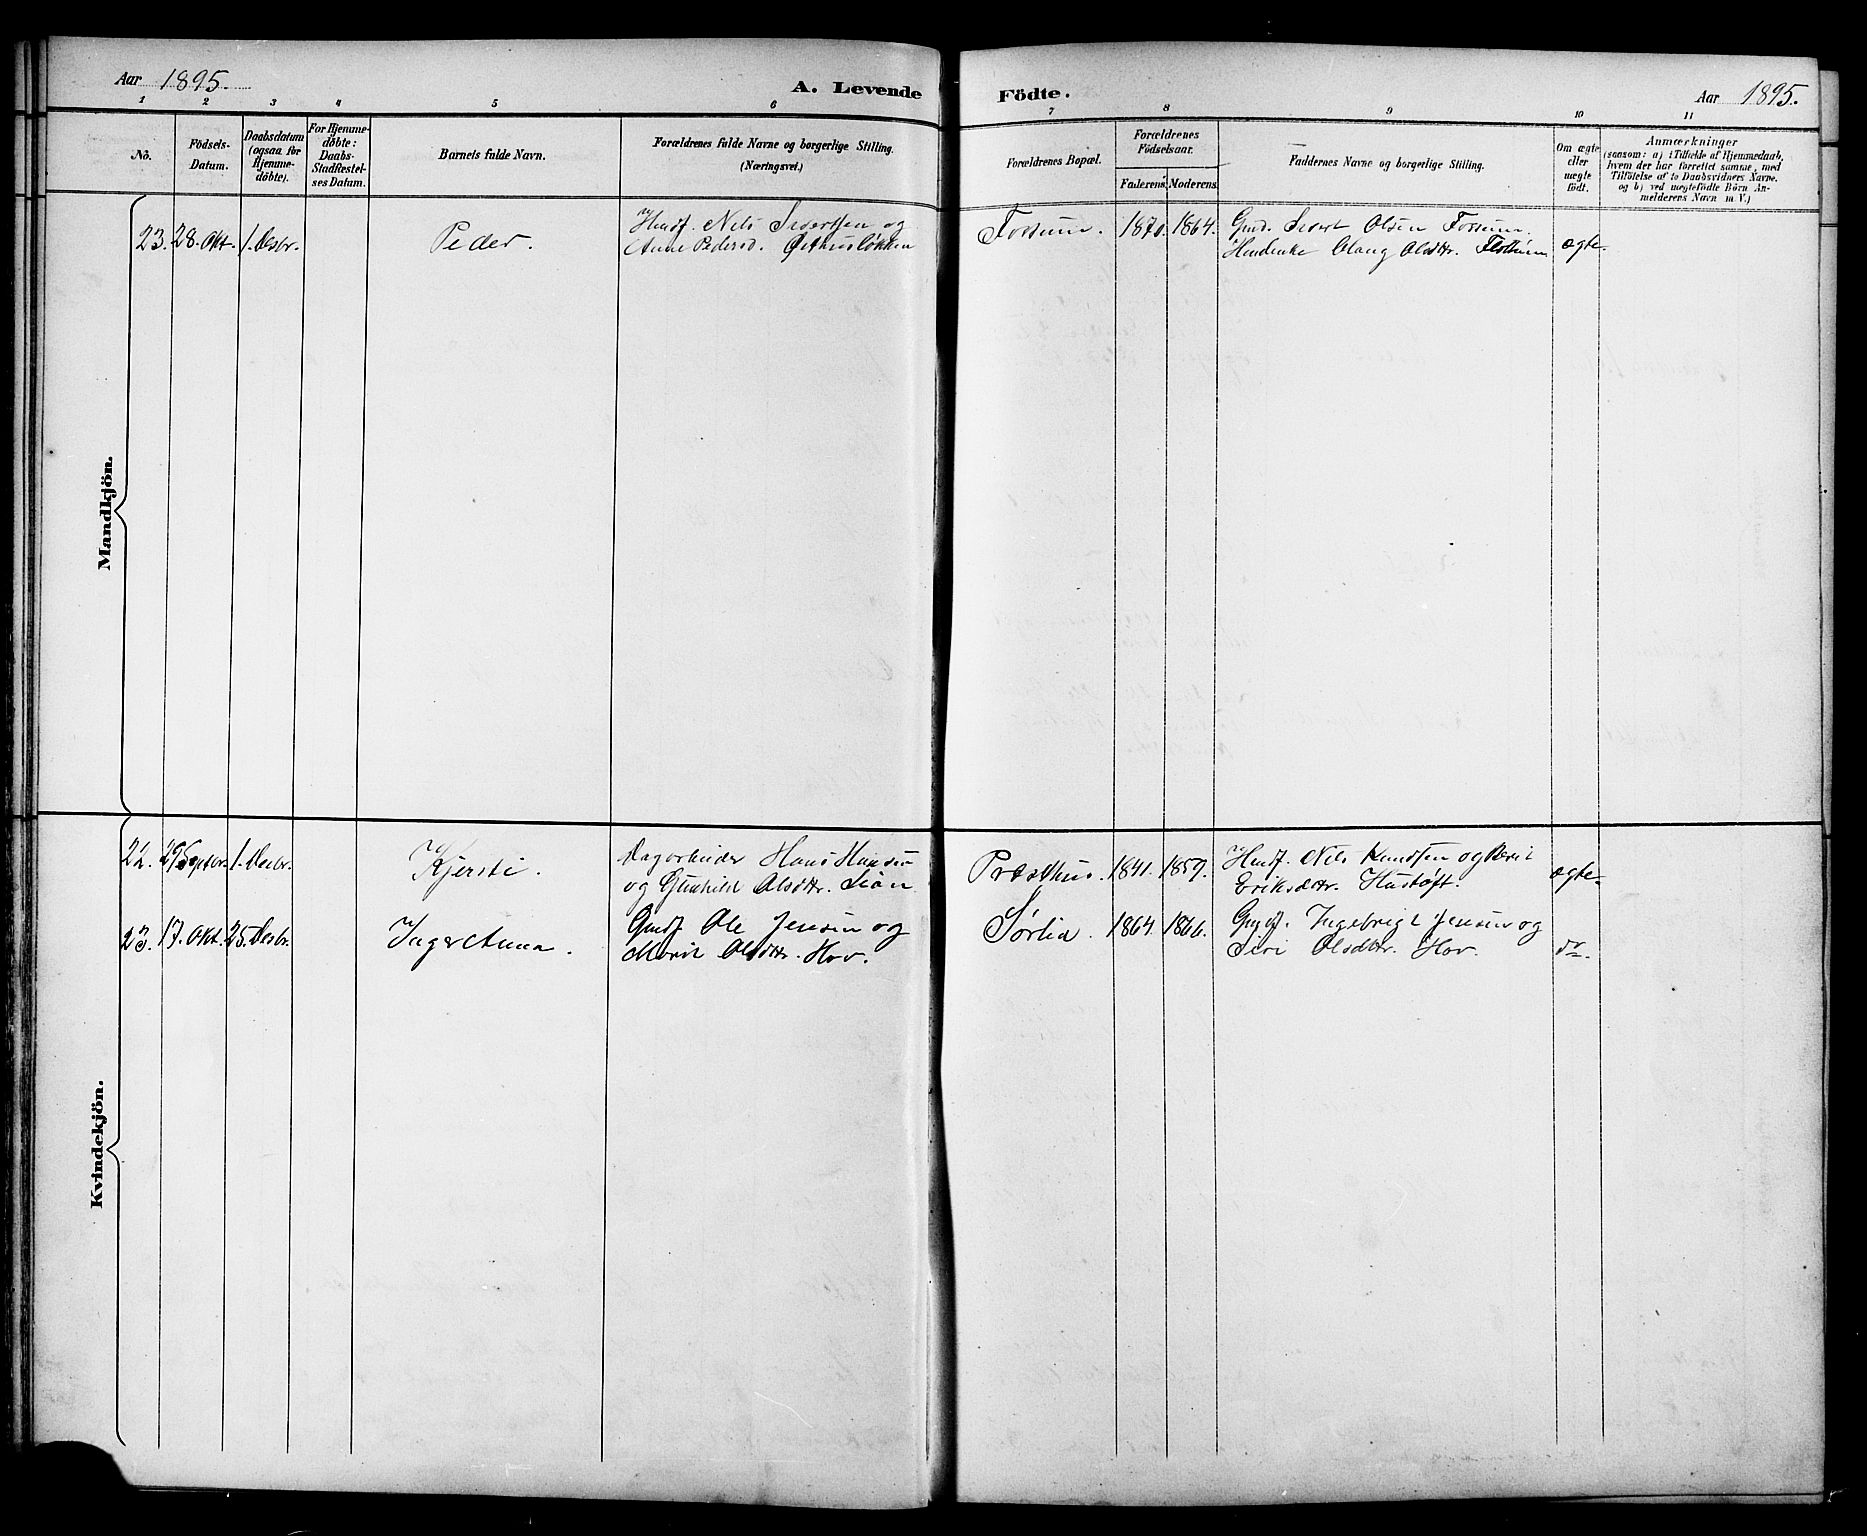 Aar 1895.
A. Levende Födte.
Aar 1895.
1 2 3 4 5 6 7 8 9 10 11
Nö.
Födsels-
Datum.
Daabsdatum
(ogsaa for
Hjemme-
döbte).
For Hjemme-
döbte:
Daabs-
Stadfæstel-
ses Datum.
Barnets fulde Navn.
Forældrenes fulde Navne og borgerlige Stilling.
(Næringsvei.)
Forældrenes Bopæl.
Forældrenes
Födselsaar.
Faderens. Moderens.
Faddernes Navne og borgerlige Stilling.
Om ægte
eller
uægte
födt.
Anmærkninger
(saasom: a) i Tilfælde af Hjemmedaab,
hvem der har forrettet samme, med
Tilföielse af to Daabsvidners Navne.
og b) ved uægtefödte Börn An-
melderens Navn m V.)
Mandkjön.
23. 28. Okt. 1. Desbr. Peder.
Husf. Nils Sivertsen og
Anne Pedersd. Östhusløkken
Forsum. 1870. 1864.
Gmd. Sivert Olsen Forsum.
Olaug Olsdtr.
ægte.
Kvindekjön.
22. 29 Septbr. 1. Desbr. Kjersti.
Dagarbeider Hans Hansen
og Gunhild Olsdtr. Moan
Præsthus. 1841. 1859.
Husf. Nils Knudsen og Berit
Eriksdtr. Hustøft.
ægte.
23. 17. Okt. 25. Desbr. Inger Anna.
Gmdf. Ole Jensen og
Marit Olsdtr. Hov.
Sørlia. 1864. 1866.
Ingebrigt Jensen og
Siri Olsdtr. Hov.
do.